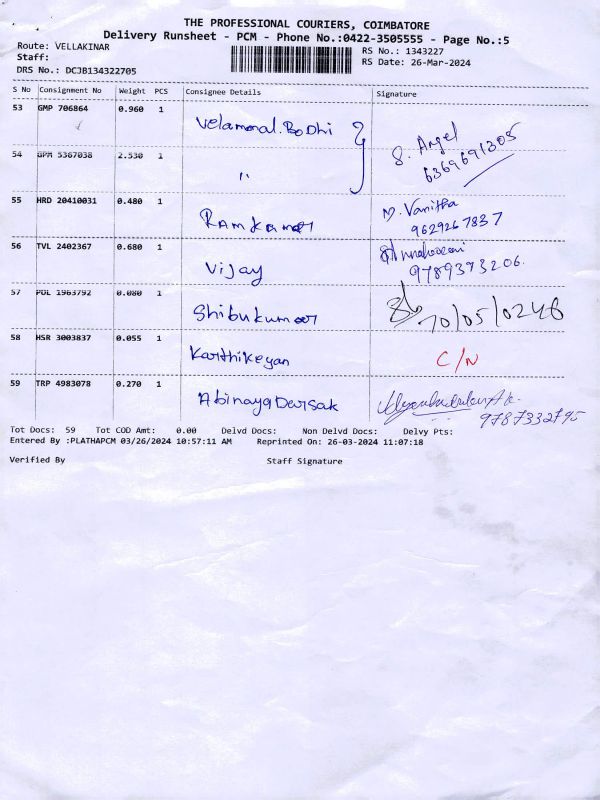 THE PROFESSIONAL COURIERS, COIMBATORE
Delivery Runsheet - PCM - Phone No.:0422-3505555 - Page No.:5
Route: VELLAKINAR
RS No.: 1343227
Staff:
RS Date: 26-Mar-2024
DRS No.: DCJB134322705
S No Consignment No Weight PCS Consignee Details Signature
53 GMP 706864 0.960 1 Velammal.BoDhi
S. Angel
6369691305
54 GPM 5367038 2.530 1 "
55 HRD 20410031 0.480 1 Ramkumar M. Vanitha
9629267837
56 TVL 2402367 0.680 1 Vijay
9789373206.
57 POL 1963792 0.080 1 Shibukumar 70/05/0246
58 HSR 3003837 0.055 1 Karthikeyan C/N
59 TRP 4983078 0.270 1 AbinayaDarsak
9787332795
Tot Docs: 59 Tot COD Amt: 0.00 Delvd Docs: Non Delvd Docs: Delvy Pts:
Entered By :PLATHAPCM 03/26/2024 10:57:11 AM Reprinted On: 26-03-2024 11:07:18
Verified By Staff Signature